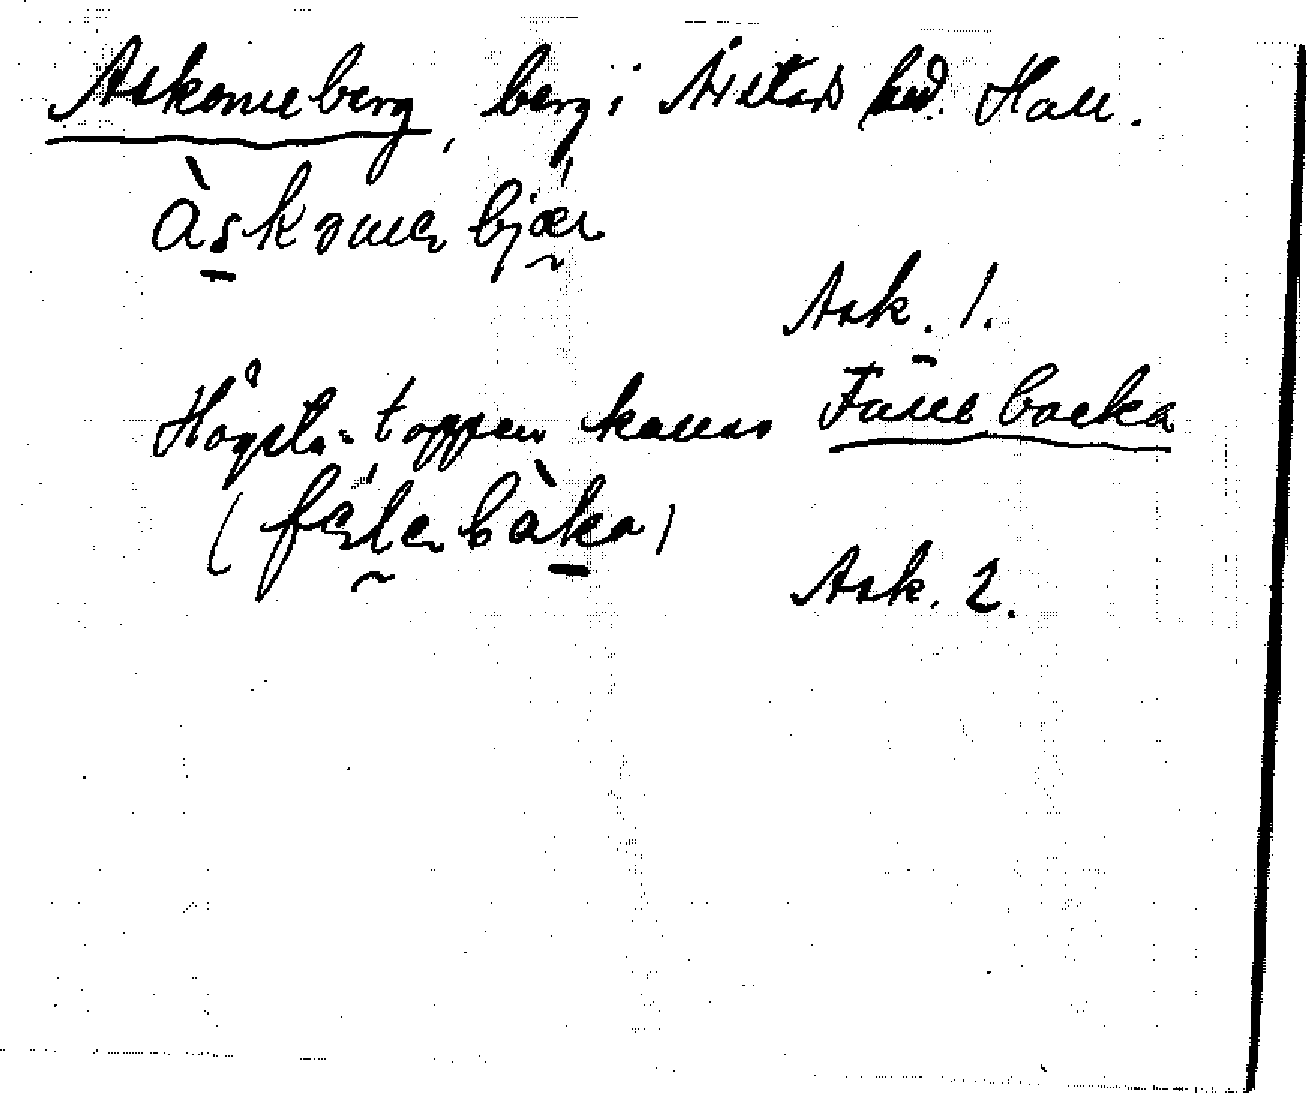 Askomeberg, berg i Årstads hd. Hall.
àskomer bjær
Ask. 1.
Högsta toppen kallas Fälle backa
(fäler bàka)
Ask. 2.